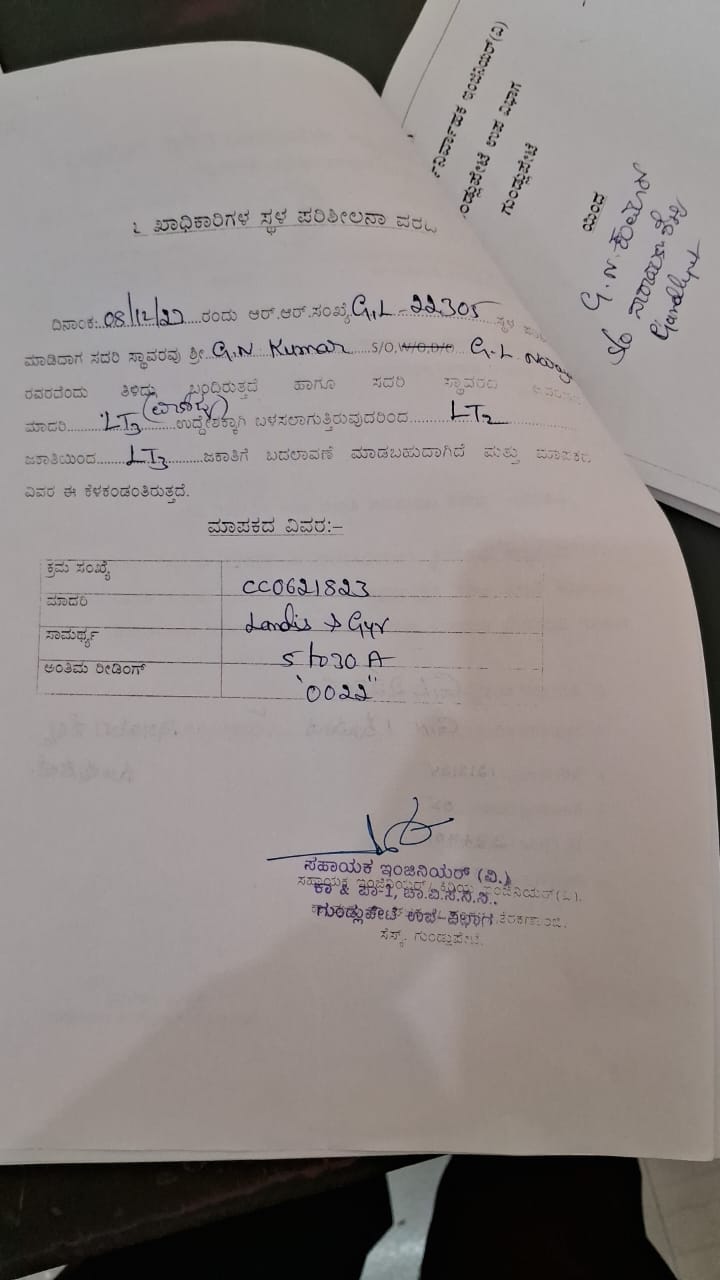 ಖಾಧಿಕಾರಿಗಳ ಸ್ಥಳ ಪರಿಶೀಲನಾ
ದಿನಾಂಕ: 08/12/22 ರಂದು ಆರ್.ಆರ್.ಸಂಖ್ಯೆ G.L - 22305 ಸ್ಥಳ
ಮಾಡಿದಾಗ ಸದರಿ ಸ್ಥಾವರವು ಶ್ರೀ G.N Kumar S/O,W/O,D/O G.L.
ರವರದೆಂದು ತಿಳಿದು ಬಂದಿರುತ್ತದೆ ಹಾಗೂ ಸದರಿ ಸ್ಥಾವರದ
ಮಾದರಿ LT3 ಉದ್ದೇಶಕ್ಕಾಗಿ ಬಳಸಲಾಗುತ್ತಿರುವುದರಿಂದ LT2
ಜಕಾತಿಯಿಂದ LT3 ಜಕಾತಿಗೆ ಬದಲಾವಣೆ ಮಾಡಬಹುದಾಗಿದೆ ಮತ್ತು ಮಾಪಕದ
ವಿವರ ಈ ಕೆಳಕಂಡಂತಿರುತ್ತದೆ.
ಮಾಪಕದ ವಿವರ:–
ಕ್ರಮ ಸಂಖ್ಯೆ CC0621823
ಮಾದರಿ Landis & Gyr
ಸಾಮರ್ಥ್ಯ 5 to 30 A
ಅಂತಿಮ ರೀಡಿಂಗ್ "0022"
ಸಹಾಯಕ ಇಂಜಿನಿಯರ್ (ವಿ.)
ಕಾ & ಪಾ-1, ಚಾ.ವಿ.ಸ.ನಿ.ನಿ.
ಗುಂಡ್ಲುಪೇಟೆ ಉಪ-ವಿಭಾಗ
ಸೆಸ್ಕ್, ಗುಂಡ್ಲುಪೇಟೆ.
ಇಂಜಿನಿಯರ್(ವಿ)
ಉಪ ವಿಭಾಗ
ಗುಂಡ್ಲುಪೇಟೆ
ಯಿಂದ
G.N.ಕುಮಾರ್
S/o
Gundlupet